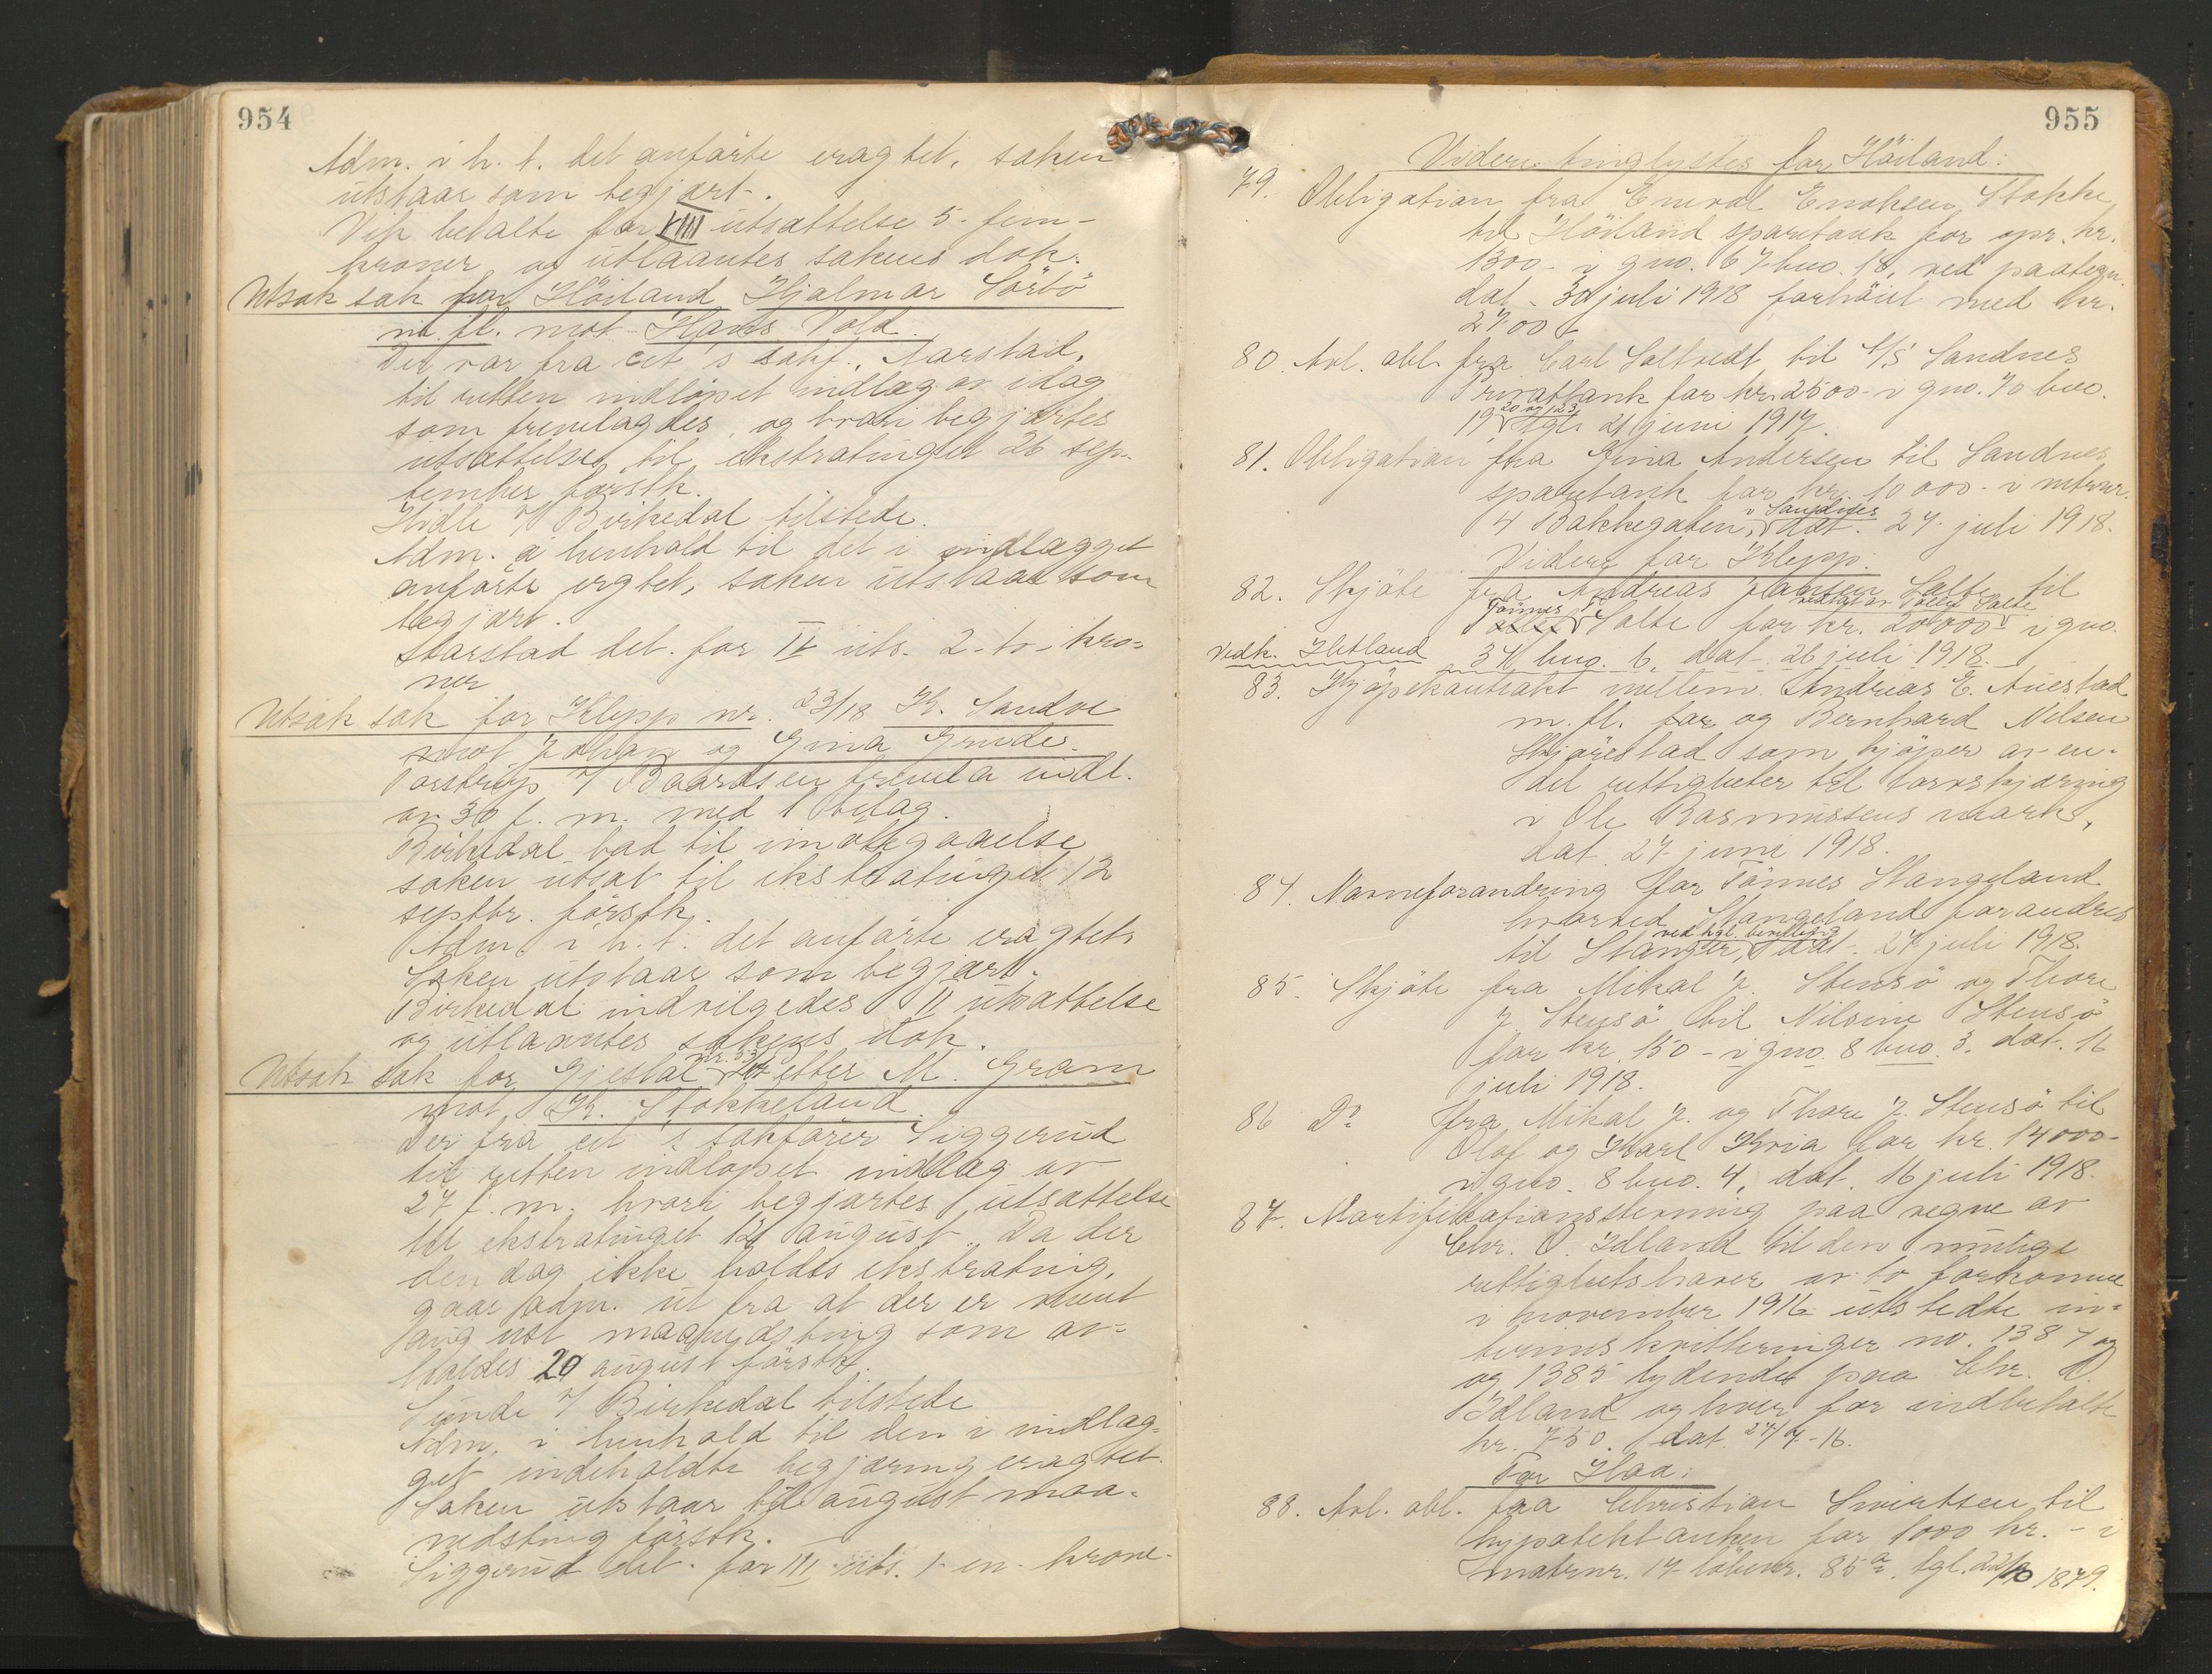 954
Adm. i h. t. det anförte eragtet, saken
utstaar som begjært.
Vik betalte for VIII utsættelse 5 - fem -
kroner og utlaantes sakens dok.
Utsat sak for Höiland Hjalmar Sörbö
m. fl. mot Hans Vold.
Der var fra cit's sakf., Aarstad,
til retten indlöpet indlæg av idag
som fremlagdes, og hvori begjærtes
utsættelse til ekstratinget 26 sep-
tember förstk.
Hidle f/ Birkedal tilstede.
Adm. i henhold til det i indlægget
anförte ergtet, saken utstaar som
begjært.
Aarstad bet. for IV uts. 2 - to - kro-
ner
Utsat sak for Klepp nr. 23/18 K. Sandve
mot Johan og Gina Grude.
Torstrup f/ Baardsen fremla indl.
av 30 f. m. med 1 bilag.
Birkedal bad til imötegaaelse
saken utsat til ekstratinget 12
septbr. förstk.
Adm. i h. t. det anförte eragtet
Saken utstaar som begjært.
Birkedal indvilgedes II utsættelse
og utlaantes sakens dok.
Utsat sak for Gjestal nr. 53/17 efter M. Gram
mot K. Stokkeland.
Der fra cit's sakförer Siggerud
til retten indlöpet indlæg av
27 f. m. hvori begjærtes utsættelse
til ekstratinget 12 august. Da der
den dag ikke holdes ekstrating,
gaar adm. ut fra at der er ment
august maanedsting som av-
holdes 20 august förstk.
Sunde f/ Birkedal tilstede
Adm. i henhold til den i indlæg-
get indeholdte begjæring eragtet.
Saken utstaar til august maa-
nedsting förstk.
Siggerud bet. for III uts. 1 - en - krone -
955
Videre tinglystes for Höiland:
79. Obligation fra Enevald Enoksen Stokke
til Höiland sparebank for opr. kr.
1300 - i gno. 67 bno. 18, ved paategn.
dat. 30 juli 1918 forhöiet med kr.
2700 -
80. Avl. obl. fra Carl Saltvedt til A/S Sandnes
Privatbank for kr. 2500 - i gno. 70 bno.
19, 20 og 123 tgl. 21 juni 1917.
81. Obligation fra Gina Andersen til Sandnes
sparebank for kr. 10 000 - i mtrnr.
4 Bakkegaten, i Sandnes dat. 27 juli 1918.
Videre for Klepp.
82. Skjöte fra Andreas Salte til
Tönnes T. Salte for kr. 20 000 - i gno.
34 bno. 6, dat. 26 juli 1918.
Vedk. Hetland
83. Kjöpekontrakt mellem Andreas E. Auestad
m. fl. for og Bernhard Nilsen
Skjörestad som kjöper av en-
del rettigheter til torvskjæring
i Ole Rasmussens mark,
dat. 27 juni 1918.
84. Navneforandring for Tönnes Stangeland
hvorved Stangeland forandres
til Stanger, ved kgl. bevilling dat. 27 juli 1918.
85. Skjöte fra Mikal J. Stensö og Thore
J. Stensö til Nilsine Stensö
for kr. 150 - i gno. 8 bno. 3, dat. 16
juli 1918.
86 Do fra Mikal J. og Thore J. Stensö til
Olaf og Karl Kvia for kr. 14 000 -
i gno. 8 bno. 4, dat. 16 juli 1918.
87. Mortifikationsstevning paa vegne av
Chr. O. Idland til den mulige
rettighetshaver av to forkomne
i november 1916 utstedte in-
terimskvitteringer no. 1384 og
og 1385 lydende paa Chr. O.
Idland og hver for indbetalte
kr. 750. dat. 27/7-16.
For Haa:
88. Avl. obl. fra Christian Sivertsen til
hypotekbanken for 1000 kr. - i
matrnr. 17 löbenr. 85a. tgl. 22/10 1879.